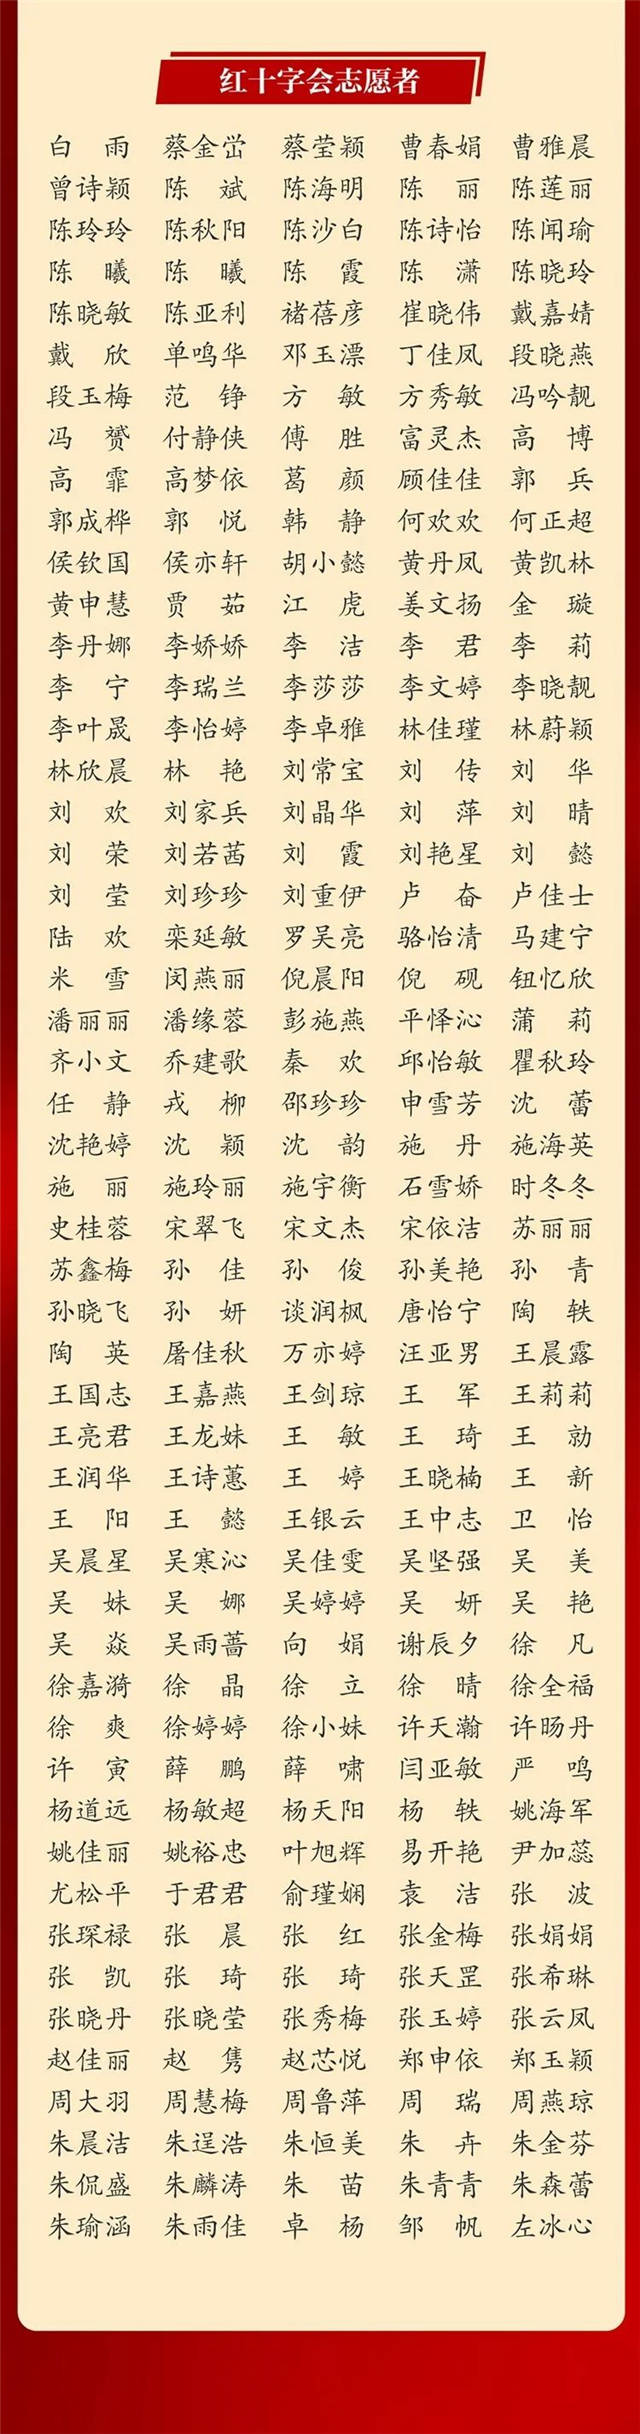 红十字会志愿者
白 雨 蔡金峃 蔡莹颖 曹春娟 曹雅晨
曾诗颖 陈 斌 陈海明 陈 丽 陈莲丽
陈玲玲 陈秋阳 陈沙白 陈诗怡 陈闻瑜
陈 曦 陈 曦 陈 霞 陈 潇 陈晓玲
陈晓敏 陈亚利 褚蓓彦 崔晓伟 戴嘉婧
戴 欣 单鸣华 邓玉漂 丁佳凤 段晓燕
段玉梅 范 铮 方 敏 方秀敏 冯吟靓
冯 赟 付静侠 傅 胜 富灵杰 高 博
高 霏 高梦依 葛 颜 顾佳佳 郭 兵
郭成桦 郭 悦 韩 静 何欢欢 何正超
侯钦国 侯亦轩 胡小懿 黄丹凤 黄凯林
黄申慧 贾 茹 江 虎 姜文扬 金 璇
李丹娜 李娇娇 李 洁 李 君 李 莉
李 宁 李瑞兰 李莎莎 李文婷 李晓靓
李叶晟 李怡婷 李卓雅 林佳瑾 林蔚颖
林欣晨 林 艳 刘常宝 刘 传 刘 华
刘 欢 刘家兵 刘晶华 刘 萍 刘 晴
刘 荣 刘若茜 刘 霞 刘艳星 刘 懿
刘 莹 刘珍珍 刘重伊 卢 奋 卢佳士
陆 欢 栾延敏 罗吴亮 骆怡清 马建宁
米 雪 闵燕丽 倪晨阳 倪 砚 钮忆欣
潘丽丽 潘缘蓉 彭施燕 平怿沁 蒲 莉
齐小文 乔建歌 秦 欢 邱怡敏 瞿秋玲
任 静 戎 柳 邵珍珍 申雪芳 沈 蕾
沈艳婷 沈 颖 沈 韵 施 丹 施海英
施 丽 施玲丽 施宇衡 石雪娇 时冬冬
史桂蓉 宋翠飞 宋文杰 宋依洁 苏丽丽
苏鑫梅 孙 佳 孙 俊 孙美艳 孙 青
孙晓飞 孙 妍 谈润枫 唐怡宁 陶 轶
陶 英 屠佳秋 万亦婷 汪亚男 王晨露
王国志 王嘉燕 王剑琼 王 军 王莉莉
王亮君 王龙妹 王 敏 王 琦 王 勍
王润华 王诗蕙 王 婷 王晓楠 王 新
王 阳 王 懿 王银云 王中志 卫 怡
吴晨星 吴寒沁 吴佳雯 吴坚强 吴 美
吴 妹 吴 娜 吴婷婷 吴 妍 吴 艳
吴 焱 吴雨蔷 向 娟 谢辰夕 徐 凡
徐嘉漪 徐 晶 徐 立 徐 晴 徐全福
徐 爽 徐婷婷 徐小妹 许天瀚 许旸丹
许 寅 薛 鹏 薛 啸 闫亚敏 严 鸣
杨道远 杨敏超 杨天阳 杨 轶 姚海军
姚佳丽 姚裕忠 叶旭辉 易开艳 尹加蕊
尤松平 于君君 俞瑾娴 袁 洁 张 波
张琛禄 张 晨 张 红 张金梅 张娟娟
张 凯 张 琦 张 琦 张天罡 张希琳
张晓丹 张晓莹 张秀梅 张玉婷 张云凤
赵佳丽 赵 隽 赵芯悦 郑申依 郑玉颖
周大羽 周慧梅 周鲁萍 周 瑞 周燕琼
朱晨洁 朱逞浩 朱恒美 朱 卉 朱金芬
朱侃盛 朱麟涛 朱 苗 朱青青 朱森蕾
朱瑜涵 朱雨佳 卓 杨 邹 帆 左冰心